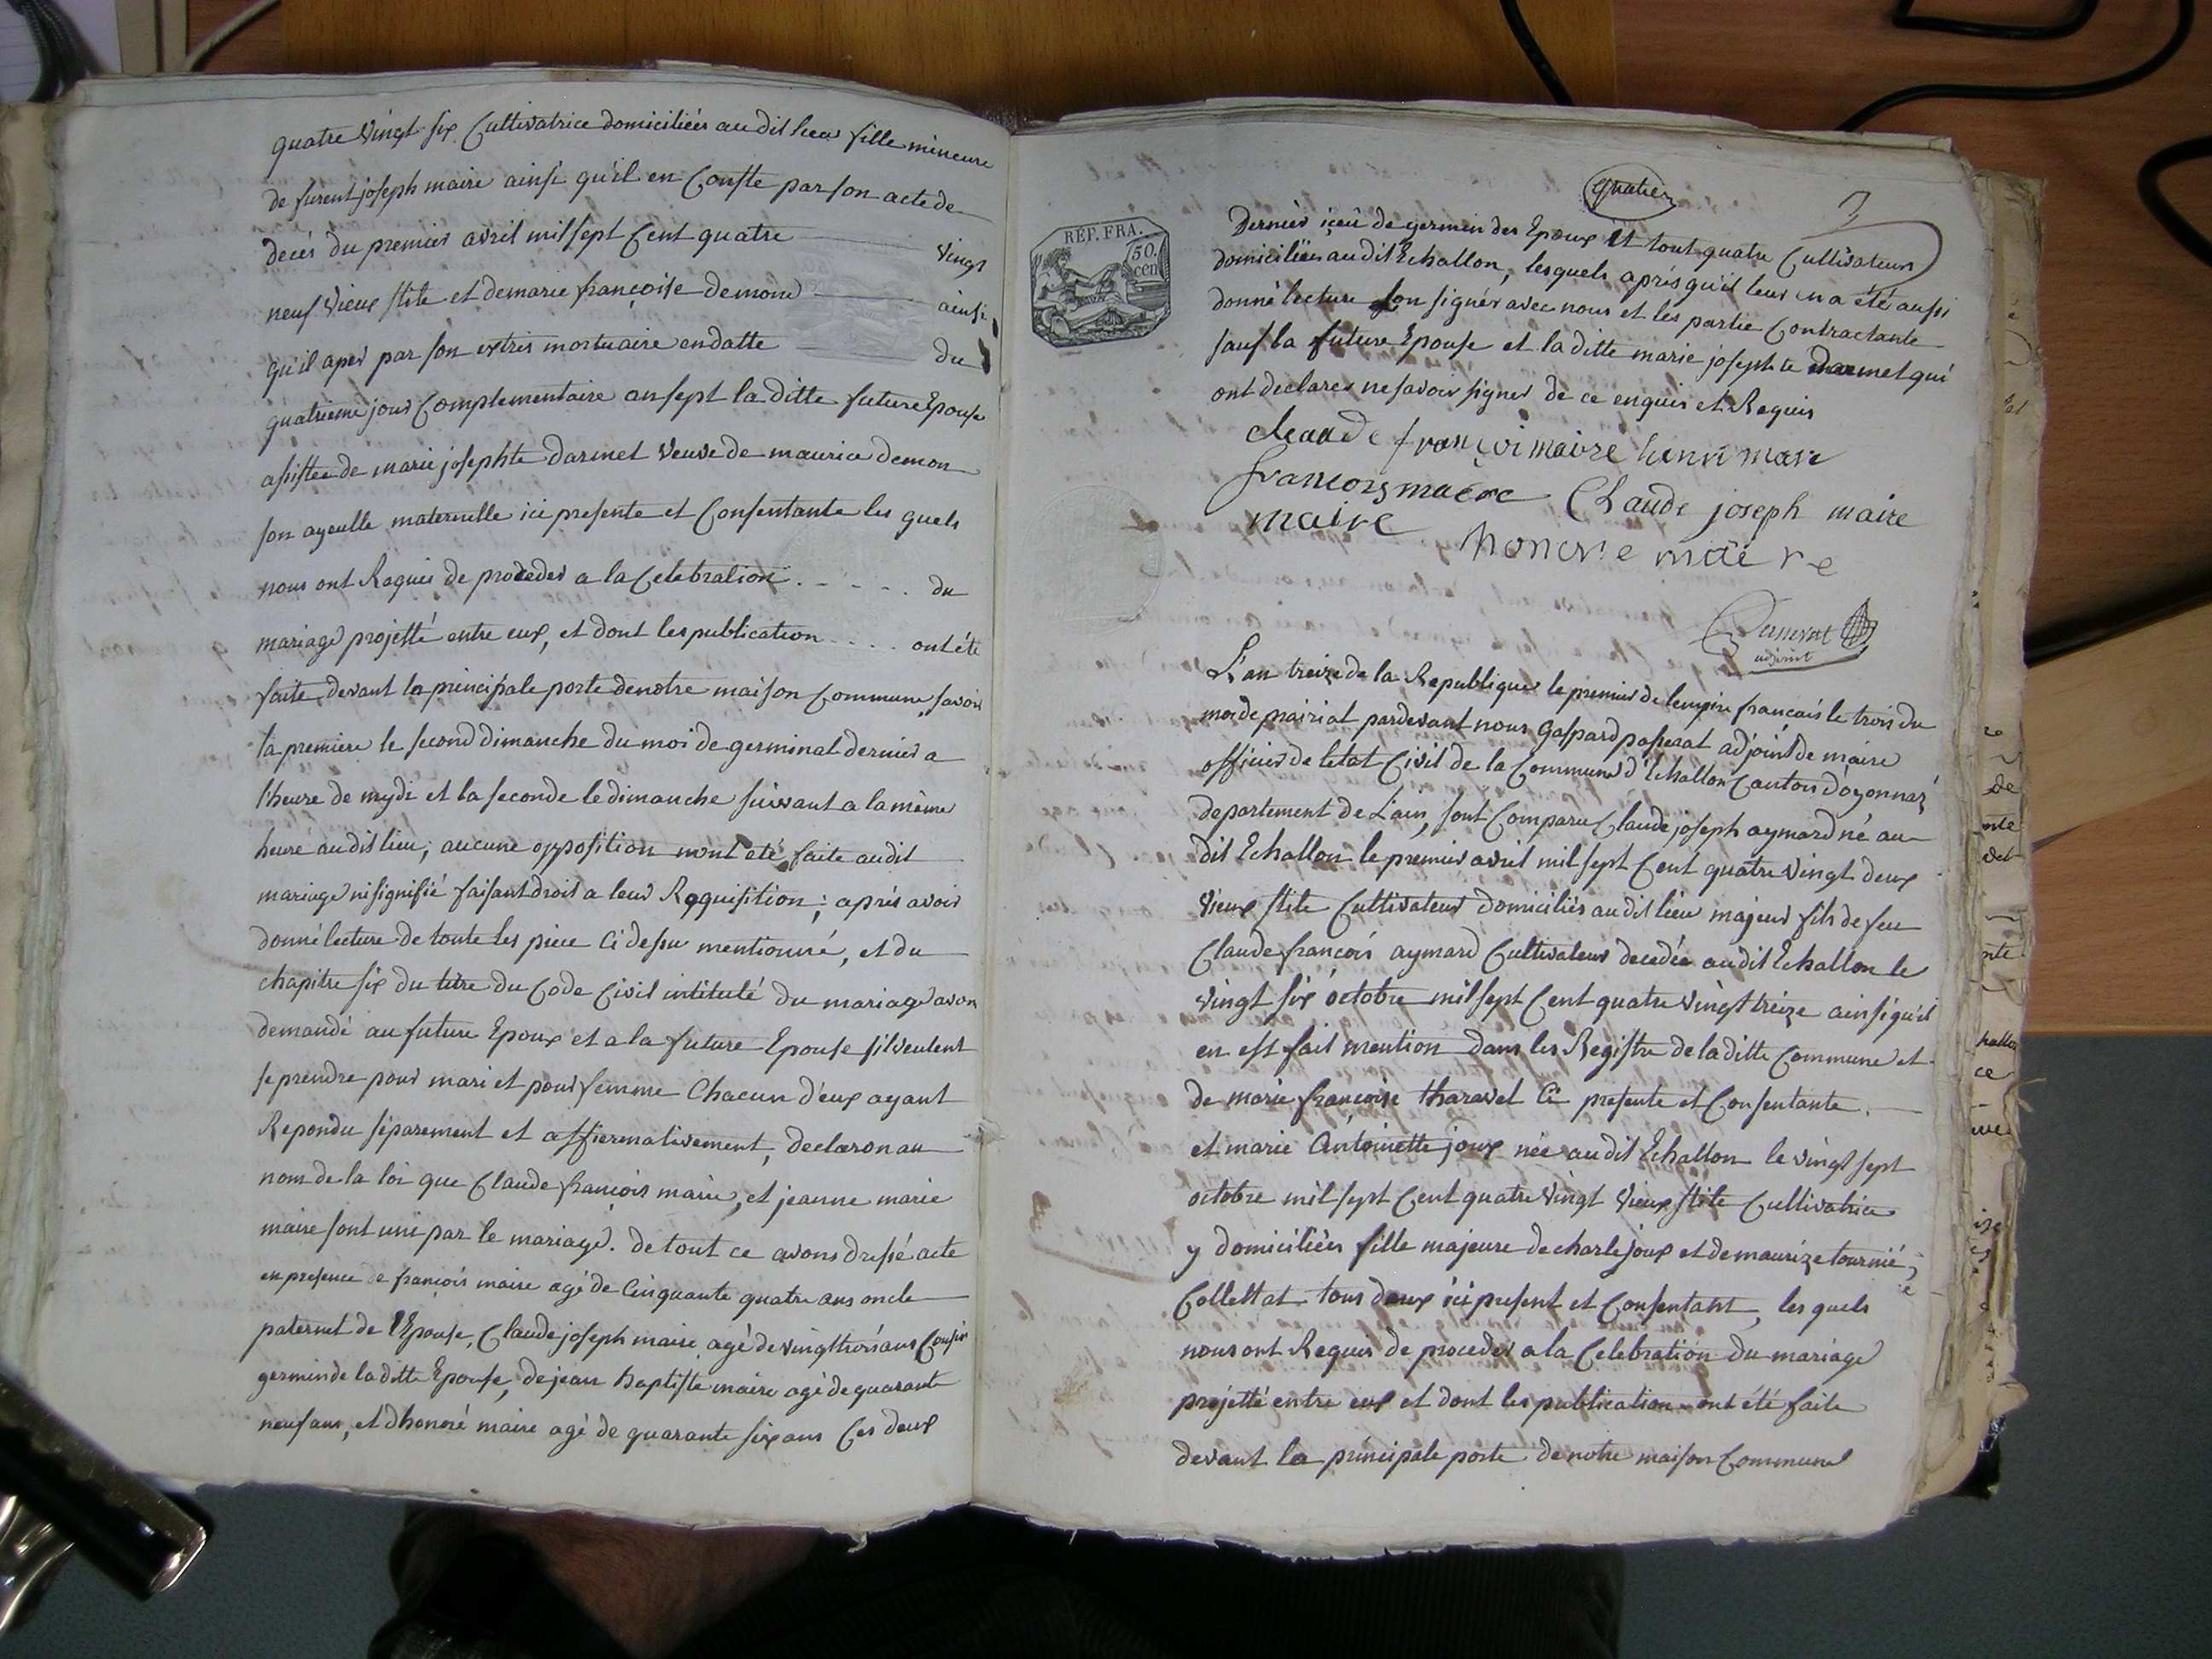 quatre vingt six Cultivatrice domiciliées au dit lieu fille mineure
de furent joseph maire ainsi qu'il en Conste par son acte de
décès du premier avril mil sept Cent quatre vingt
neuf vieux stile et de marie françoise demond ainsi
qu'il aper par son extris mortuaire endatte du
quatrieme jour Complementaire an sept la ditte future Epouse
asistée de marie josephte darmet veuve de maurice demon
son ayeulle maternelle ici presente et Consentante les quels
nous ont Requis de proceder a la Celebration du
mariage projetté entre eux, et dont les publication ont été
faite devant la principale porte de notre maison Commune savoir
la premiere le second dimanche du moi de germinal dernier a
l'heure de mydi et la seconde le dimanche suivant a la même
heure au dit lieu; aucune opposition nont été faite audit
mariage ni signifié faisant droit a leur Requisition; aprés avoir
donné lecture de toute les piece Ci dessu mentionné, et du
chapitre six du titre du Code Civil intitulé du mariage avon
demandé au future Epoux et a la future Epouse s'il veulent
se prendre pour mari et pour femme Chacun d'eux ayant
Repondu séparement et affiermativement, declaron au
nom de la loi que Claude françois maire, et jeanne marie
maire sont uni par le mariage. de tout ce avons dressé acte
en presence de francois maire agé de Cinquante quatre ans oncle
paternel de l'Epouse, Claude joseph maire agé de vingt trois ans Cousin
germin de la ditte Epouse, de jean baptiste maire agé de quarante
neuf ans, et d'honoré maire agé de quarante six ans Ces deux
quatre
3
REP. FRA.
50.
cen
Dernier de germin des Epoux et tout quatre Cultivateur
domiciliés au dit Echallon, lesquels aprés qu'il leur en a été aussi
donné lecture son signér avec nous et les partie Contractante
sauf la future Epouse et la ditte marie josephte darmet qui
ont declarer ne savoir signer de ce enquis et Requis
claude françoi maire henri maire
francois maire Claude joseph maire
maire honore maire
Passerat
adjoint
L'an treize de la Republique le premier de lempire français le trois du
moi de prairial pardevant nous Gaspard passerat adjoint de maire
officier de letat Civil de la Commune d'Echallon Canton d'oyonnaz
departement de L'ain, sont Comparu Claude joseph aymard né au
dit Echallon le premier avril mil sept Cent quatre vingt deux
vieux stile Cultivateur domiciliés au dit lieu majeur fils de feu
Claude francois aymard Cultivateur decedée au dit Echallon le
vingt six octobre mil sept Cent quatre vingt treize ainsi qu'il
en est fait mention dans les Registre de la ditte Commune et
de marie francoise tharavel Ci presente et Consentante.
et marie Antoinette joux née au dit Echallon le vingt sept
octobre mil sept Cent quatre vingt vieux stile Cultivatrice
y domiciliées fille majeure de charle joux et de maurize tournié
Collettat tous deux ici present et Consentant, les quels
nous ont Requis de proceder a la Celebration du mariage
projetté entre eux et dont les publication ont été faite
devant la principale porte de notre maison Commune